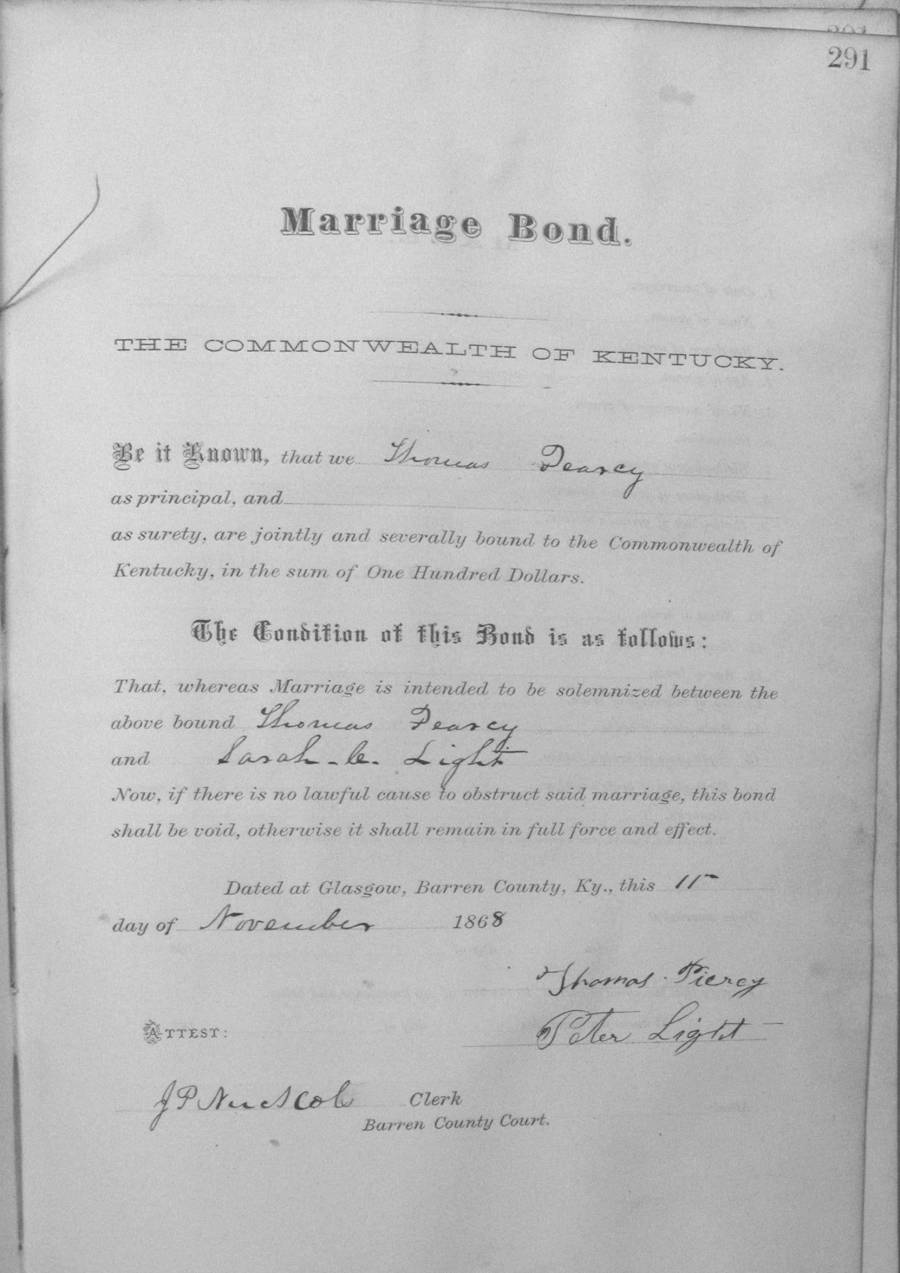 291
Marriage Bond.
THE COMMONWEALTH OF KENTUCKY.
Be it Known, that we Thomas Pearcy
as principal, and
as surety, are jointly and severally bound to the Commonwealth of
Kentucky, in the sum of One Hundred Dollars.
The Condition of this Bond is as follows:
That, whereas Marriage is intended to be solemnized between the
above bound Thomas Pearcy
and Sarah C. Light
Now, if there is no lawful cause to obstruct said marriage, this bond
shall be void, otherwise it shall remain in full force and effect.
Dated at Glasgow, Barren County, Ky., this
day of November 1868
Thomas Piercy
ATTEST: Peter Light
J P Clerk
Barren County Court.